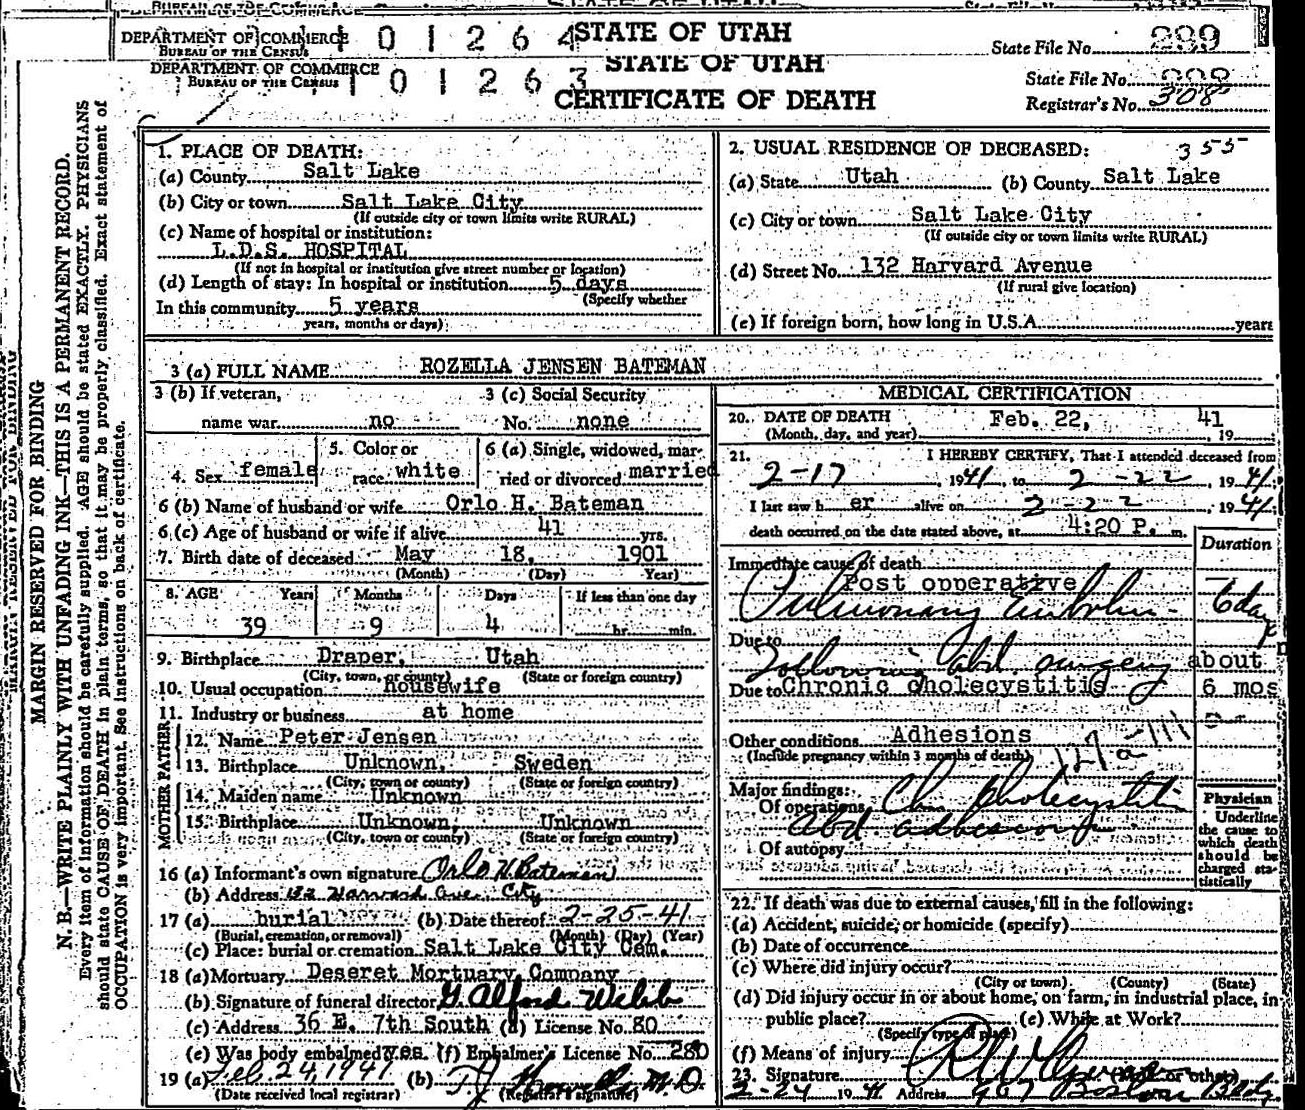 DEPARTMENT OF COMMERCE
BUREAU OF THE CENSUS
1 0 1 2 6 4
STATE OF UTAH
State File No. 299
DEPARTMENT OF COMMERCE
BUREAU OF THE CENSUS
1 0 1 2 6 3
STATE OF UTAH
State File No.
CERTIFICATE OF DEATH
Registrar's No. 308
MARGIN RESERVED FOR BINDING
N. B.—WRITE PLAINLY WITH UNFADING INK—THIS IS A PERMANENT RECORD.
Every item of information should be carefully supplied. AGE should be stated EXACTLY. PHYSICIANS
should state CAUSE OF DEATH in plain terms, so that it may be properly classified. Exact statement of
OCCUPATION is very important. See instructions on back of certificate.
1. PLACE OF DEATH:
(a) County Salt Lake
(b) City or town Salt Lake City
(If outside city or town limits write RURAL)
(c) Name of hospital or institution:
L.D.S. HOSPITAL
(If not in hospital or institution give street number or location)
(d) Length of stay: In hospital or institution 5 days
(Specify whether
In this community 5 years
years, months or days)
2. USUAL RESIDENCE OF DECEASED: 355
(a) State Utah (b) County Salt Lake
(c) City or town Salt Lake City
(If outside city or town limits write RURAL)
(d) Street No. 132 Harvard Avenue
(If rural give location)
(e) If foreign born, how long in U.S.A. years
3 (a) FULL NAME ROZELLA JENSEN BATEMAN
3 (b) If veteran,
name war no
3 (c) Social Security
No. none
4. Sex female
5. Color or
race white
6 (a) Single, widowed, mar-
ried or divorced married
6 (b) Name of husband or wife Orlo H. Bateman
6 (c) Age of husband or wife if alive 41 yrs.
7. Birth date of deceased May 18, 1901
(Month) (Day) Year)
8. AGE Years Months Days If less than one day
39 9 4 hr. min.
9. Birthplace Draper, Utah
(City, town, or county) (State or foreign country)
10. Usual occupation housewife
11. Industry or business at home
FATHER
12. Name Peter Jensen
13. Birthplace Unknown, Sweden
(City, town or county) (State or foreign country)
MOTHER
14. Maiden name Unknown
15. Birthplace Unknown, Unknown
(City, town or county) (State or foreign country)
16 (a) Informant's own signature Orlo H Bateman
(b) Address 132 Harvard Ave. City
17 (a) burial (b) Date thereof 2-25-41
(Burial, cremation, or removal) (Month) (Day) (Year)
(c) Place: burial or cremation Salt Lake City Cem.
18 (a) Mortuary Deseret Mortuary Company
(b) Signature of funeral director G. Alford Webb
(c) Address 36 E. 7th South (d) License No. 80
(e) Was body embalmed? yes. (f) Embalmer's License No. 280
19 (a) Feb. 24, 1941 (b) T. J. Howells M.D.
(Date received local registrar) (Registrar's signature)
MEDICAL CERTIFICATION
20. DATE OF DEATH Feb. 22, 19 41
(Month, day, and year)
21. I HEREBY CERTIFY, That I attended deceased from
2-17, 1941, to 2-22, 1941.
I last saw h er alive on 2-22, 1941.
death occurred on the date stated above, at 4:20 P. m.
Duration
Immediate cause of death
Post opperative
Pulmonary Embolism 6 days
Due to
Following abd surgery about
Due to Chronic cholecystitis 6 mos
Other conditions Adhesions
(Include pregnancy within 3 months of death)
127a-111
Major findings:
Of operations Chr. Cholecystitis
Abd adhesions
Of autopsy
Physician
Underline
the cause to
which death
should be
charged sta-
tistically
22. If death was due to external causes, fill in the following:
(a) Accident, suicide, or homicide (specify)
(b) Date of occurrence
(c) Where did injury occur?
(City or town) (County) (State)
(d) Did injury occur in or about home, on farm, in industrial place, in
public place? (e) While at Work?
(Specify type of place)
(f) Means of injury
23. Signature (M.D. or other)
2-24 1941 Address 907 Boston Bldg.